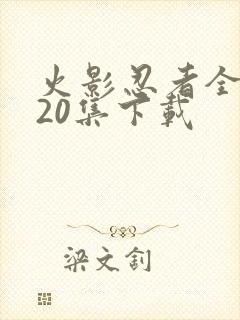 火影忍者全
20集下载
梁文钊